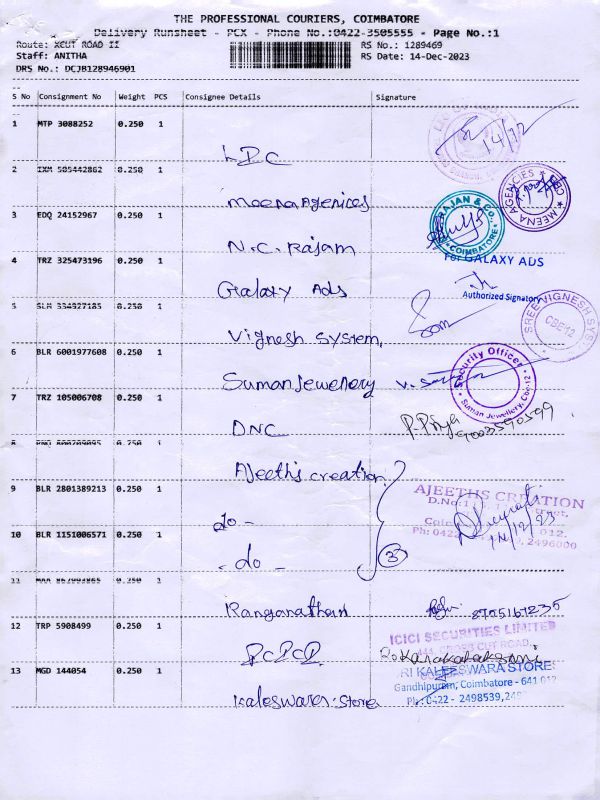 THE PROFESSIONAL COURIERS, COIMBATORE
Delivery Runsheet - PCX - Phone No.:0422-3505555 - Page No.:1
Route: XCUT ROAD II RS No.: 1289469
Staff: ANITHA RS Date: 14-Dec-2023
DRS No.: DCJB128946901
S No Consignment No Weight PCS Consignee Details Signature
1 MTP 3088252 0.250 1 14/12
LIC
2 IXM 505442862 0.250 1 MEENA AGENCIES CBE
Meena Agenices
3 EDQ 24152967 0.250 1 RAJAN & Co. COIMBATORE
N.C. Rajam
4 TRZ 325473196 0.250 1 For GALAXY ADS
Galaxy Ads Authorized Signatory
5 SLM 334927185 0.250 1 SREE VIGNESH SYS CBE-12
Vignesh System,
6 BLR 6001977608 0.250 1 Security Officer
Suman Jewellery Suman Jewellery, Cbe-12
7 TRZ 105006708 0.250 1 P. Priya 9003590599
DNC
8 0.250 1
Ajeeths creation
9 BLR 2801389213 0.250 1 AJEETHS CREATION
do - 14/12/23
10 BLR 1151006571 0.250 1 012.
- do - 3 Ph: 0422 2496000
11 MAA 0.250 1
Ranganathan 8705167235
12 TRP 5908499 0.250 1 ICICI SECURITIES LIMITED
PCPCP 444, CROSS CUT ROAD,
13 MGD 144054 0.250 1 SRI KALESWARA STORE
Gandhipuram, Coimbatore - 641 012
Kaleswara store Ph: 0422 - 2498539, 249